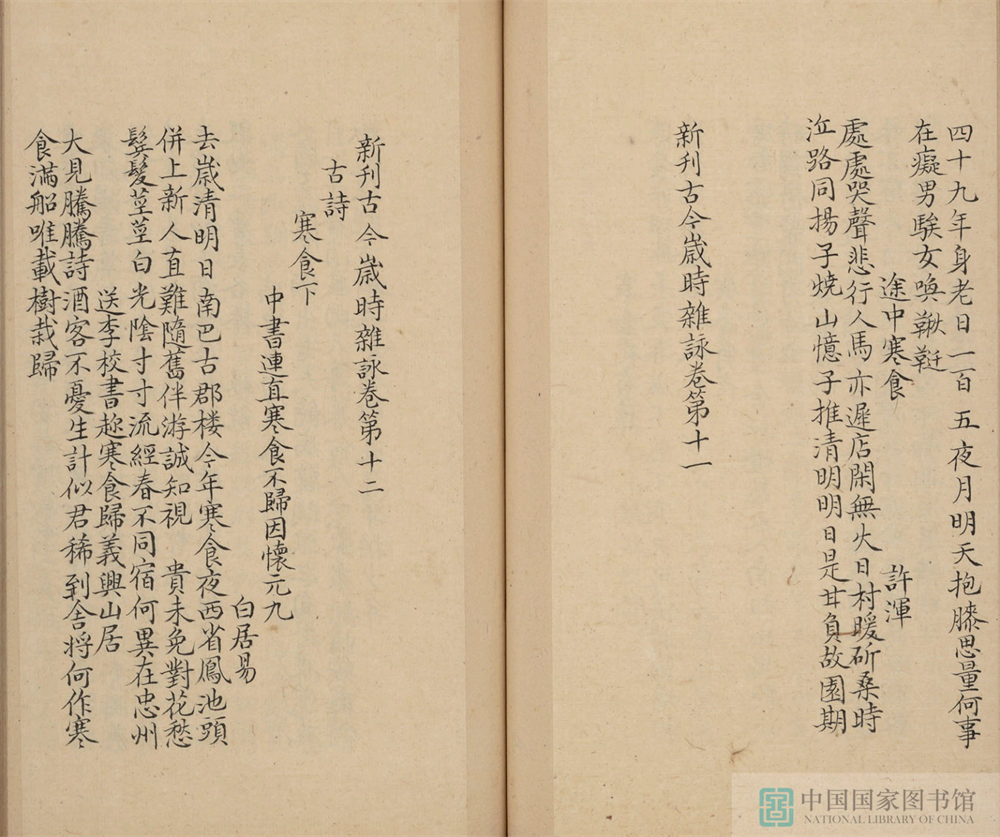 四十九年身老日一百五夜月明天抱膝思量何事
在癡男騃女喚鞦韆
途中寒食
許渾
處處哭聲悲行人馬亦遲店閑無火日村暖斫桑時
泣路同揚子燒山憶子推清明明日是甘負故園期
新刊古今歲時雜詠卷第十一
新刊古今歲時雜詠卷第十二
古詩
寒食下
中書連直寒食不歸因懷元九
白居易
去歲清明日南巴古郡楼今年寒食夜西省鳳池頭
併上新人直難隨舊伴游誠知視 貴未免對花愁
鬂髮莖莖白光陰寸寸流經春不同宿何異在忠州
送李校書趂寒食歸義興山居
大見騰騰詩酒客不憂生計似君稀到舍將何作寒
食滿船唯載樹栽歸
中国国家图书馆
NATIONAL LIBRARY OF CHINA